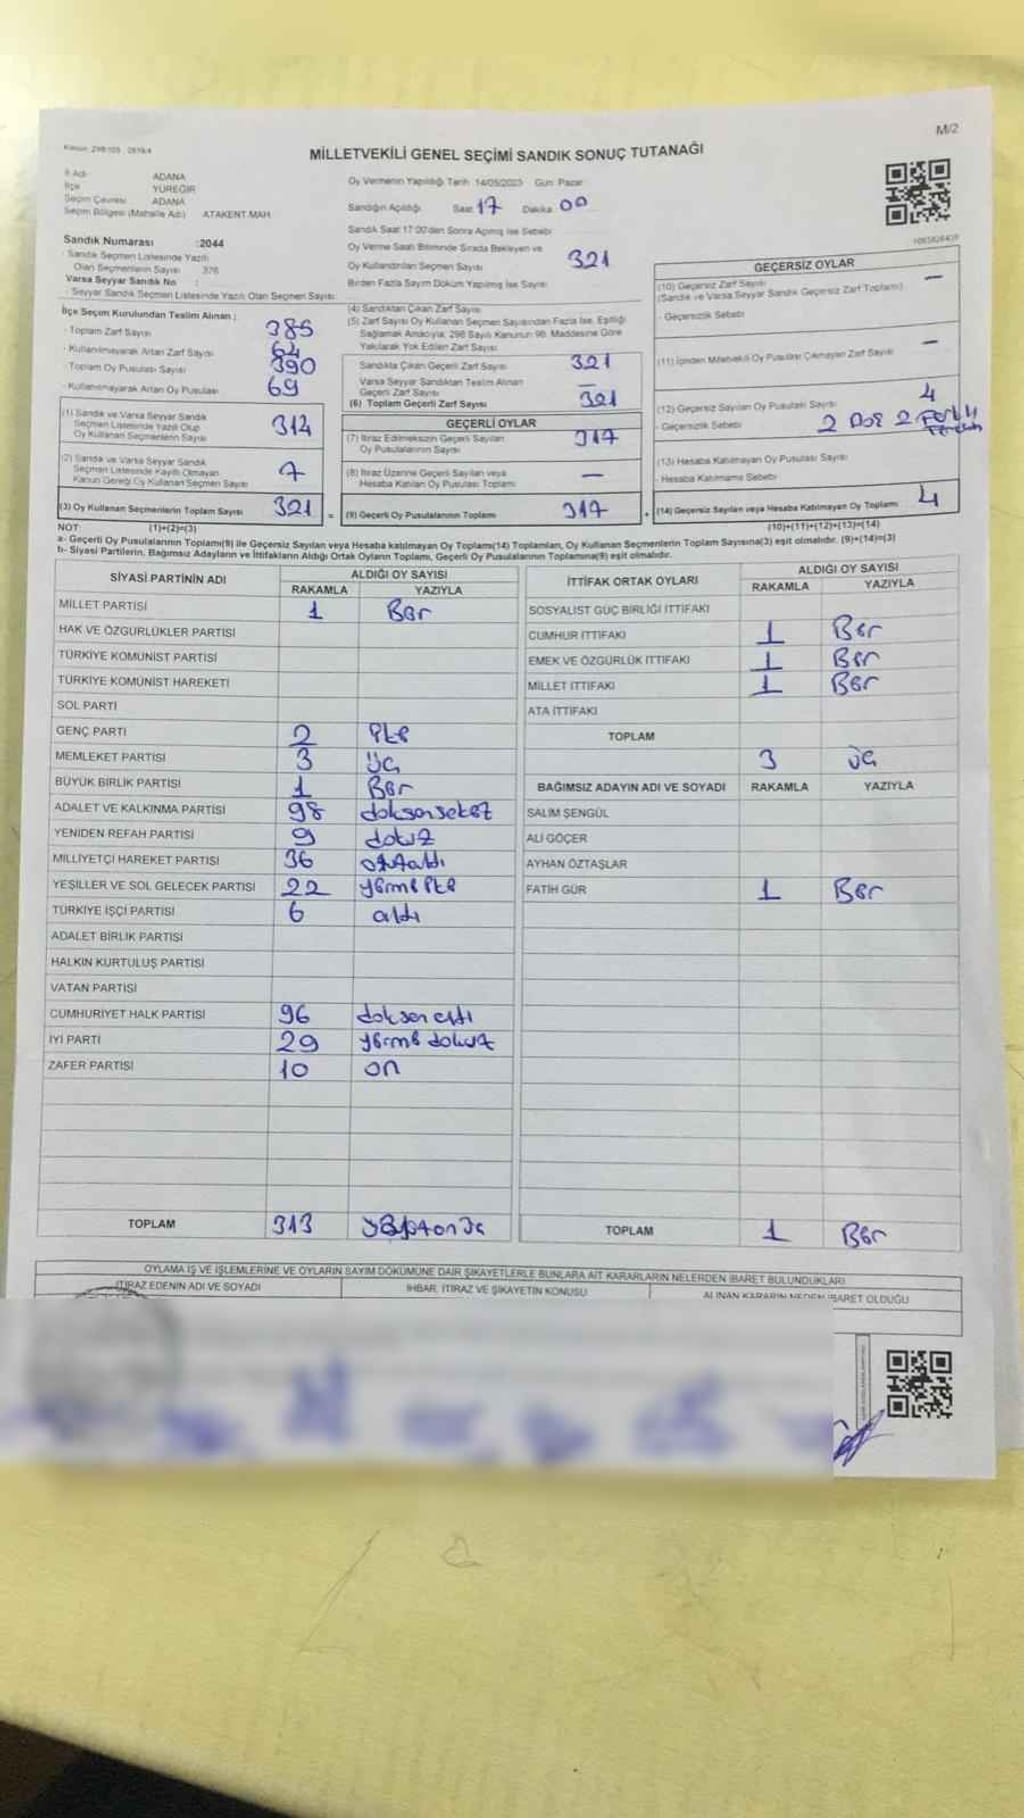 M/2
MİLLETVEKİLİ GENEL SEÇİMİ SANDIK SONUÇ TUTANAĞI
İl Adı ADANA
İlçe YÜREĞİR
Seçim Çevresi ADANA
Seçim Bölgesi (Mahalle Adı) ATAKENT MAH.
Sandık Numarası :2044
Sandık Seçmen Listesinde Yazılı
Olan Seçmenlerin Sayısı 376
Varsa Seyyar Sandık No :
Seyyar Sandık Seçmen Listesinde Yazılı Olan Seçmen Sayısı
Oy Vermenin Yapıldığı Tarih 14/05/2023 Gün: Pazar
Sandığın Açıldığı Saat 17 Dakika 00
Sandık Saat 17:00'den Sonra Açılmış İse Sebebi
Oy Verme Saati Bitiminde Sırada Bekleyen ve
Oy Kullandırılan Seçmen Sayısı 321
Birden Fazla Sayım Döküm Yapılmış İse Sayısı
İlçe Seçim Kurulundan Teslim Alınan :
- Toplam Zarf Sayısı 385
- Kullanılmayarak Artan Zarf Sayısı 64
- Toplam Oy Pusulası Sayısı 390
- Kullanılmayarak Artan Oy Pusulası 69
(1) Sandık ve Varsa Seyyar Sandık
Seçmen Listesinde Yazılı Olup
Oy Kullanan Seçmenlerin Sayısı 314
(2) Sandık ve Varsa Seyyar Sandık
Seçmen Listesinde Kayıtlı Olmayan
Kanun Gereği Oy Kullanan Seçmen Sayısı 7
(3) Oy Kullanan Seçmenlerin Toplam Sayısı 321 =
(4) Sandıktan Çıkan Zarf Sayısı
(5) Zarf Sayısı Oy Kullanan Seçmen Sayısından Fazla İse, Eşitliği
Sağlamak Amacıyla, 298 Sayılı Kanunun 98. Maddesine Göre
Yakılarak Yok Edilen Zarf Sayısı
Sandıkta Çıkan Geçerli Zarf Sayısı 321
Varsa Seyyar Sandıktan Teslim Alınan
Geçerli Zarf Sayısı —
(6) Toplam Geçerli Zarf Sayısı 321
GEÇERLİ OYLAR
(7) İtiraz Edilmeksizin Geçerli Sayılan
Oy Pusulalarının Sayısı 317
(8) İtiraz Üzerine Geçerli Sayılan veya
Hesaba Katılan Oy Pusulası Toplamı —
(9) Geçerli Oy Pusulalarının Toplamı 317 +
GEÇERSİZ OYLAR
(10) Geçersiz Zarf Sayısı —
(Sandık ve Varsa Seyyar Sandık Geçersiz Zarf Toplamı)
- Geçersizlik Sebebi
(11) İçinden Milletvekili Oy Pusulası Çıkmayan Zarf Sayısı —
(12) Geçersiz Sayılan Oy Pusulası Sayısı 4
- Geçersizlik Sebebi 2 Boş 2 Farklı
(13) Hesaba Katılmayan Oy Pusulası Sayısı
- Hesaba Katılmama Sebebi
(14) Geçersiz Sayılan veya Hesaba Katılmayan Oy Toplamı 4
NOT: (1)+(2)=(3) (10)+(11)+(12)+(13)=(14)
a- Geçerli Oy Pusulalarının Toplamı(9) ile Geçersiz Sayılan veya Hesaba katılmayan Oy Toplamı(14) Toplamları, Oy Kullanan Seçmenlerin Toplam Sayısına(3) eşit olmalıdır. (9)+(14)=(3)
b- Siyasi Partilerin, Bağımsız Adayların ve İttifakların Aldığı Ortak Oyların Toplamı, Geçerli Oy Pusulalarının Toplamına(9) eşit olmalıdır.
SİYASİ PARTİNİN ADI ALDIĞI OY SAYISI
RAKAMLA YAZIYLA
MİLLET PARTİSİ 1 Bir
HAK VE ÖZGÜRLÜKLER PARTİSİ
TÜRKİYE KOMÜNİST PARTİSİ
TÜRKİYE KOMÜNİST HAREKETİ
SOL PARTİ
GENÇ PARTİ 2 iki
MEMLEKET PARTİSİ 3 üç
BÜYÜK BİRLİK PARTİSİ 1 Bir
ADALET VE KALKINMA PARTİSİ 98 doksansekiz
YENİDEN REFAH PARTİSİ 9 dokuz
MİLLİYETÇİ HAREKET PARTİSİ 36 otuzaltı
YEŞİLLER VE SOL GELECEK PARTİSİ 22 yirmi iki
TÜRKİYE İŞÇİ PARTİSİ 6 altı
ADALET BİRLİK PARTİSİ
HALKIN KURTULUŞ PARTİSİ
VATAN PARTİSİ
CUMHURİYET HALK PARTİSİ 96 doksan altı
İYİ PARTİ 29 yirmi dokuz
ZAFER PARTİSİ 10 on
TOPLAM 313
İTTİFAK ORTAK OYLARI ALDIĞI OY SAYISI
RAKAMLA YAZIYLA
SOSYALİST GÜÇ BİRLİĞİ İTTİFAKI
CUMHUR İTTİFAKI 1 Bir
EMEK VE ÖZGÜRLÜK İTTİFAKI 1 Bir
MİLLET İTTİFAKI 1 Bir
ATA İTTİFAKI
TOPLAM
3 üç
BAĞIMSIZ ADAYIN ADI VE SOYADI RAKAMLA YAZIYLA
SALİM ŞENGÜL
ALİ GÖÇER
AYHAN ÖZTAŞLAR
FATİH GÜR 1 Bir
TOPLAM 1 Bir
OYLAMA İŞ VE İŞLEMLERİNE VE OYLARIN SAYIM DÖKÜMÜNE DAİR ŞİKAYETLERLE BUNLARA AİT KARARLARIN NELERDEN İBARET BULUNDUKLARI
İTİRAZ EDENİN ADI VE SOYADI İHBAR, İTİRAZ VE ŞİKAYETİN KONUSU ALINAN KARARIN NEDEN İBARET OLDUĞU